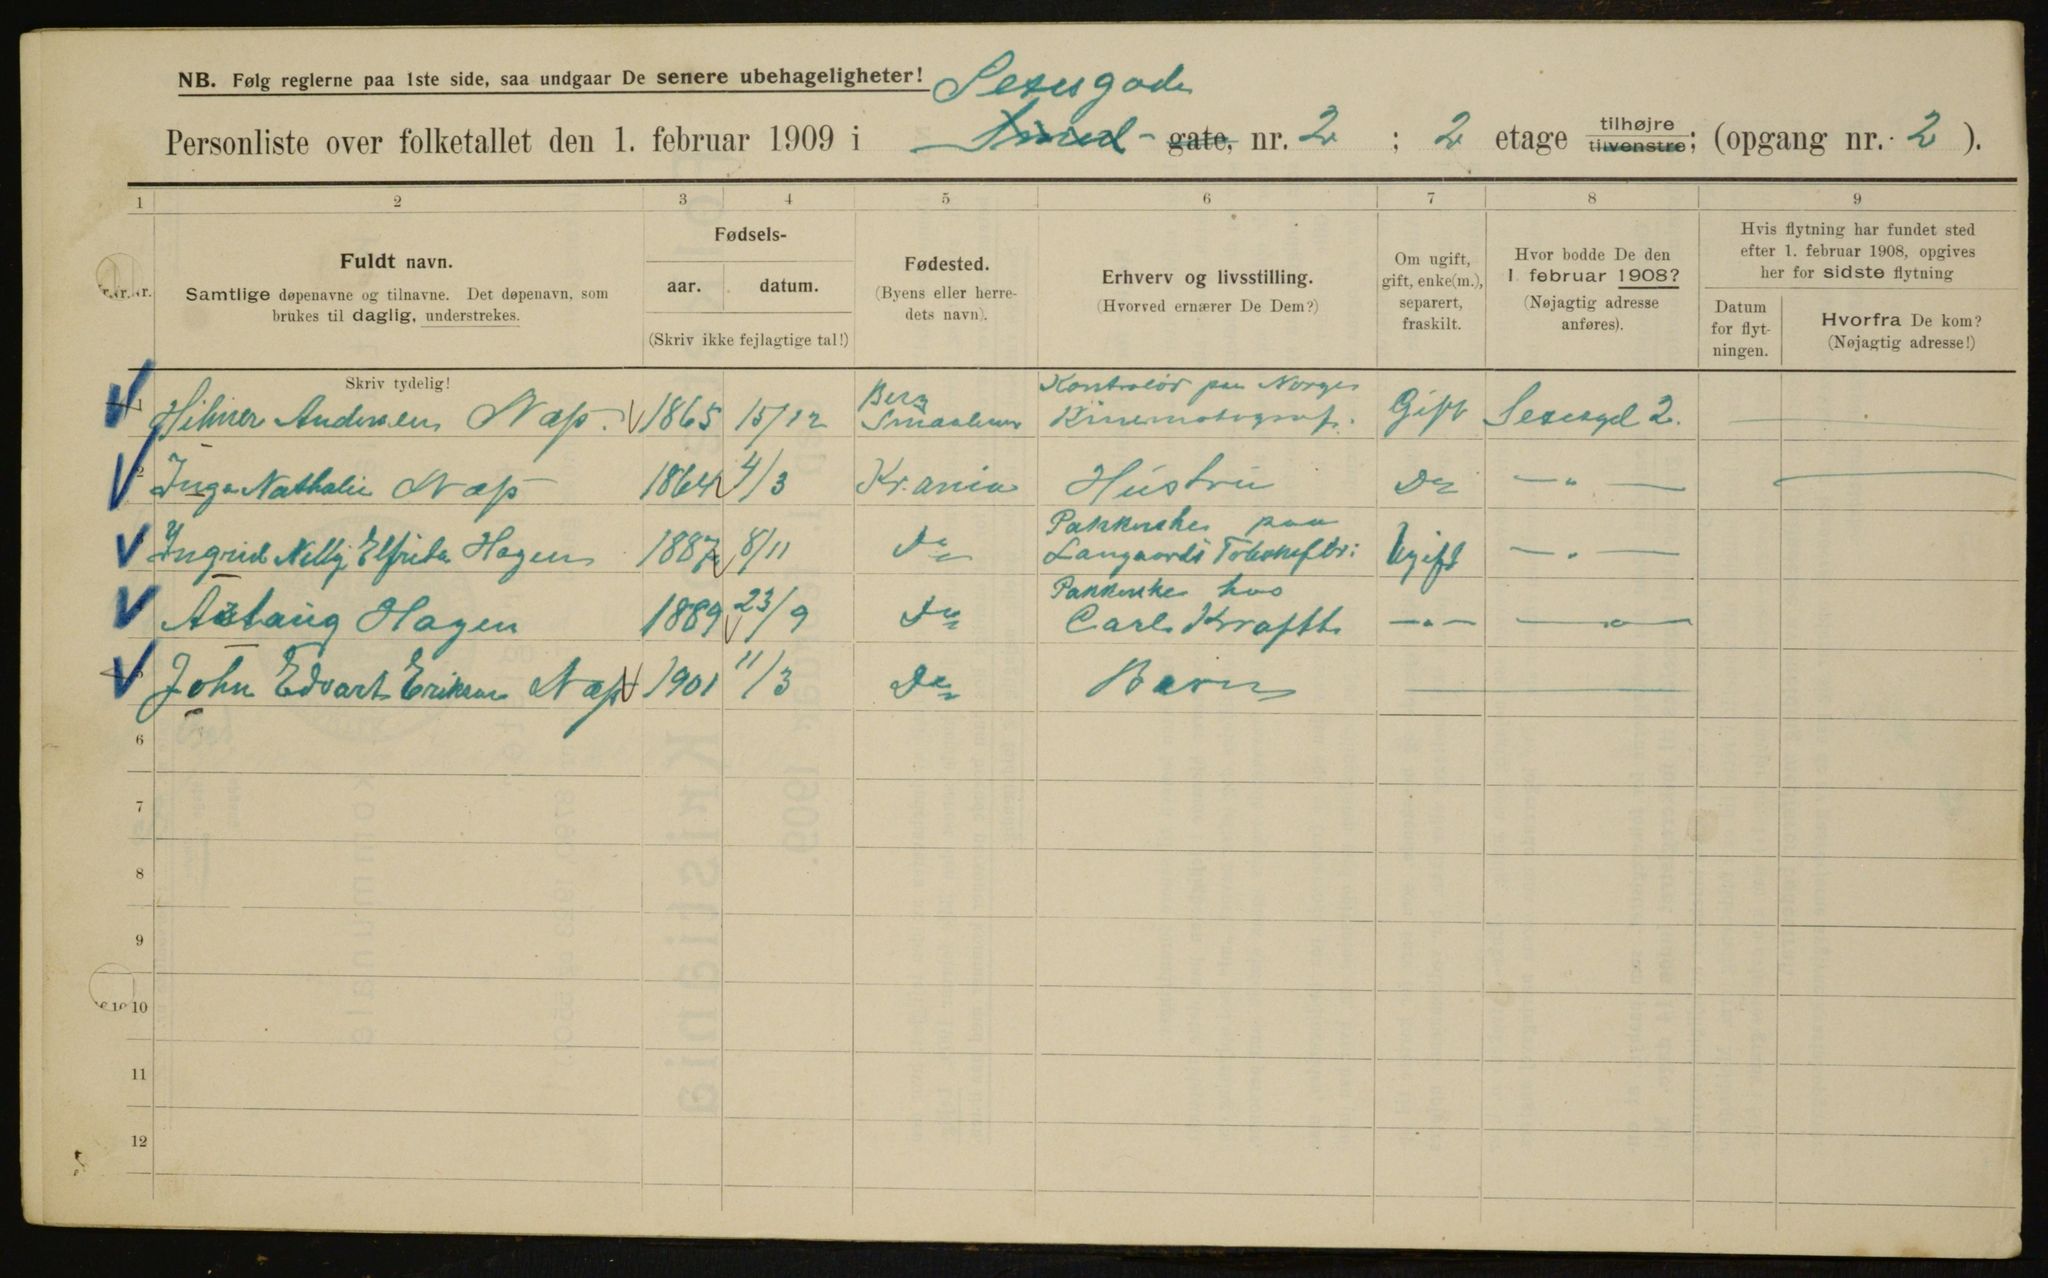 NB. Følg reglerne paa 1ste side, saa undgaar De senere ubehageligheter!
Sexesgade
Personliste over folketallet den 1. februar 1909 i Smed- gate, nr. 2 ; 2 etage tilhøjre tilvenstre; (opgang nr. 2 ).
1 2 3 4 5 6 7 8 9
Fuldt navn.
Samtlige døpenavne og tilnavne. Det døpenavn, som
brukes til daglig, understrekes.
Skriv tydelig!
Fødsels-
aar. datum.
(Skriv ikke fejlagtige tal!)
Fødested.
(Byens eller herre-
dets navn).
Erhverv og livsstilling.
(Hvorved ernærer De Dem?)
Om ugift,
gift, enke(m.),
separert,
fraskilt.
Hvor bodde De den
1. februar 1908?
(Nøjagtig adresse
anføres).
Hvis flytning har fundet sted
efter 1. februar 1908, opgives
her for sidste flytning
Datum
for flyt-
ningen.
Hvorfra De kom?
(Nøjagtig adresse!)
Berg Kontrolør paa Norges
Hilmer Andersen Næss. 1865 15/12 Smaalenene Kinematograf. Gift Sexesgd 2.
2 Inga Nathalie Næss 1864 4/3 Kr.ania Hustru Do —"—
Pakkerske paa
Ingrid Nelly Elfrida Hagen 1887 8/11 Do Langaards Tobaksfbr: Ugift —"—
Pakkerske hos
Aslaug Hagen 1889 23/9 Do Carl Krafft —"— —"—
John Edvart Eriksen Næss 1901 11/3 Do Barn
6
7
8
9
10
11
12